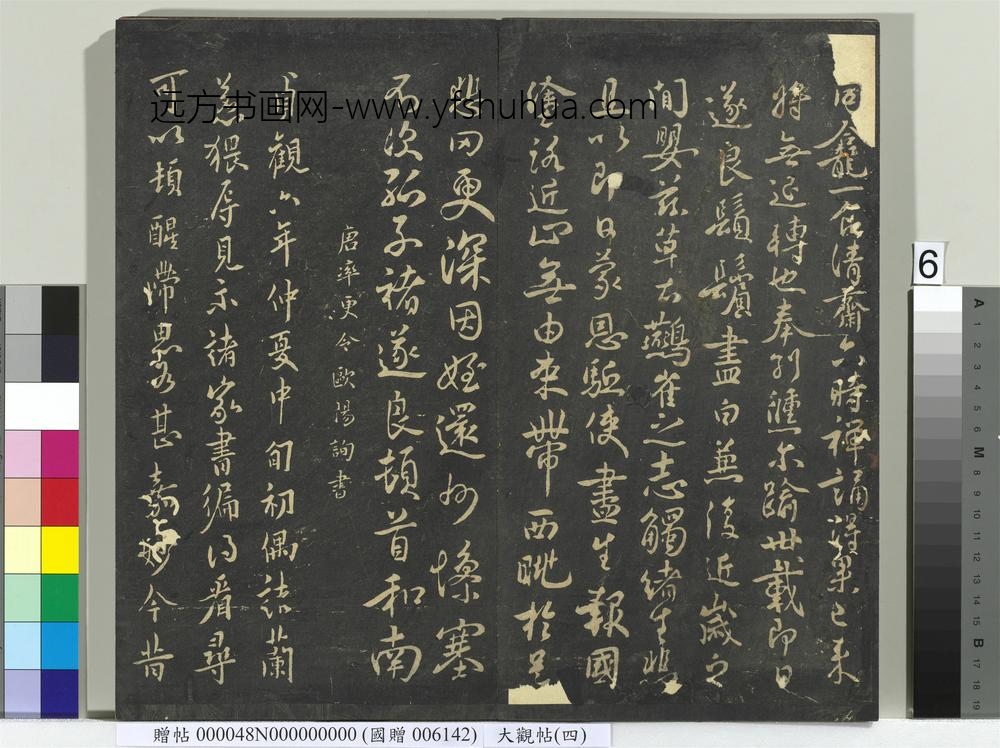 同食龕一食清齋六時禪誦得果已來
將無退轉也奉別倐尔踰卅載即日
遂良鬚鬢盡白兼復近歲之
間嬰茲草土鷰雀之志觸緒生悲
且以即日蒙恩驅使盡生報國
塗路近止無由束帶西眺於邑
悲罔更深因姪還州慘塞
不次孤子褚遂良頓首和南
唐率更令歐陽詢書
貞觀六年仲夏中旬初偶詰蘭
若猥辱見示諸家書徧得看尋
可以頓醒滯思百 甚嘉 妙今昔
远方书画网-www.yfshuhua.com
6
A 1 2 3 4 5 6 M 8 9 10 11 12 13 14 15 B 17 18 19
贈帖 000048N000000000 (國贈 006142) 大觀帖(四)